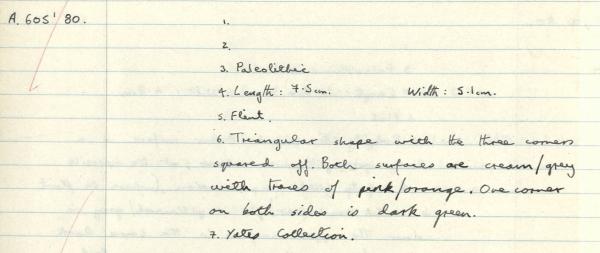 A.605'80.
1.
2.
3. Paleolithic
4. Length: 7.5cm. Width: 5.1cm.
5. Flint.
6. Triangular shape with the three corners
squared off. Both surfaces are cream/grey
with traces of pink/orange. One corner
on both sides is dark green.
7. Yates Collection.